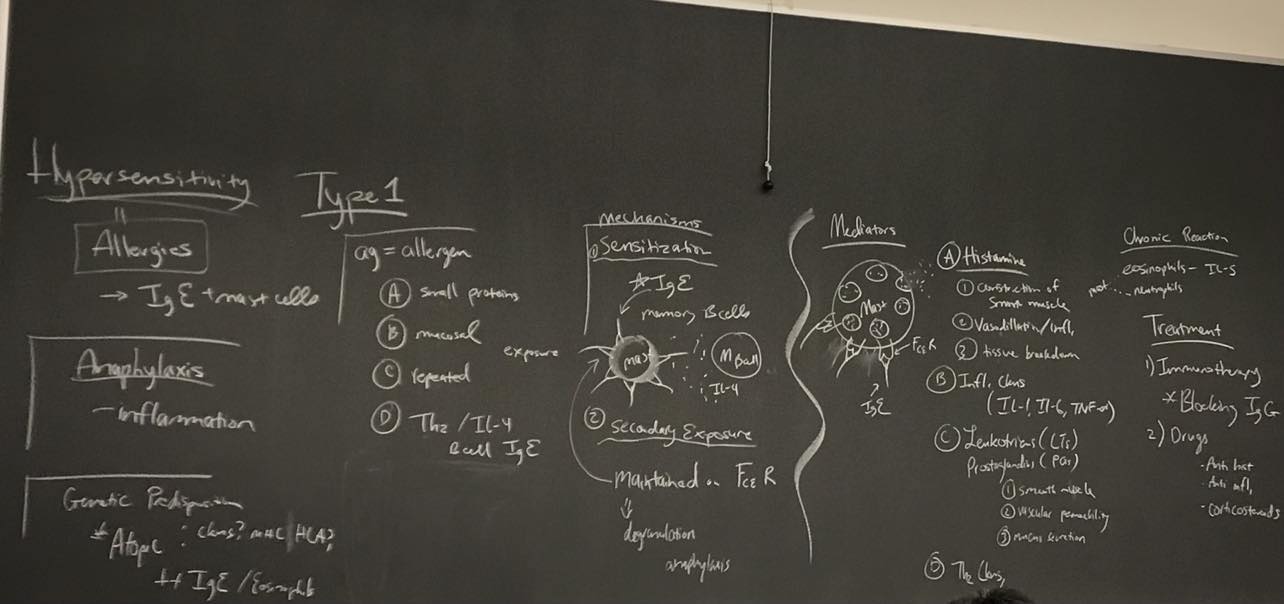 Hypersensitivity
Type 1
=
Allergies
→ IgE + mast cells
Anaphylaxis
- inflammation
Genetic
* Atopic : MHC
++ IgE / Eosinophils
ag = allergen
(A) small proteins
(B) mucosal exposure
(C) repeated
(D) Th2 / IL-4
B cell IgE
mechanisms
① Sensitization
* IgE
memory B cells
mast
M Bcell
IL-4
② Secondary Exposure
Maintained on FcεR
⇓
degranulation
anaphylaxis
Mediators
Mast
FcεR
IgE
(A) Histamine
① Constriction of
smooth muscle
② Vasodilation/infl.
③ tissue breakdown
(B) Infl. Ckns
(IL-1, IL-6, TNF-α)
(C) Leukotrienes (LTs)
Prostaglandins (PGs)
① smooth muscle
② vascular permeability
③ mucus secretion
(D) Th2 Ckns,
Chronic Reaction
eosinophils - IL-5
neutrophils
Treatment
1) Immunotherapy
* Blocking IgG
2) Drugs
- Anti hist
- Anti infl,
- corticosteroids